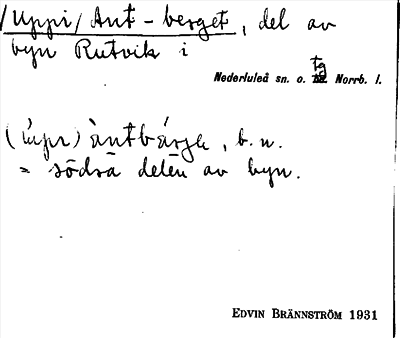 /Uppi/Ant-berget, del av
byn Rutvik i
Nederluleå sn. o. tg Norrb. l.
(ùpi) àntbárjɛ, b. n.
= södra delen av byn.
EDVIN BRÄNNSTRÖM 1931